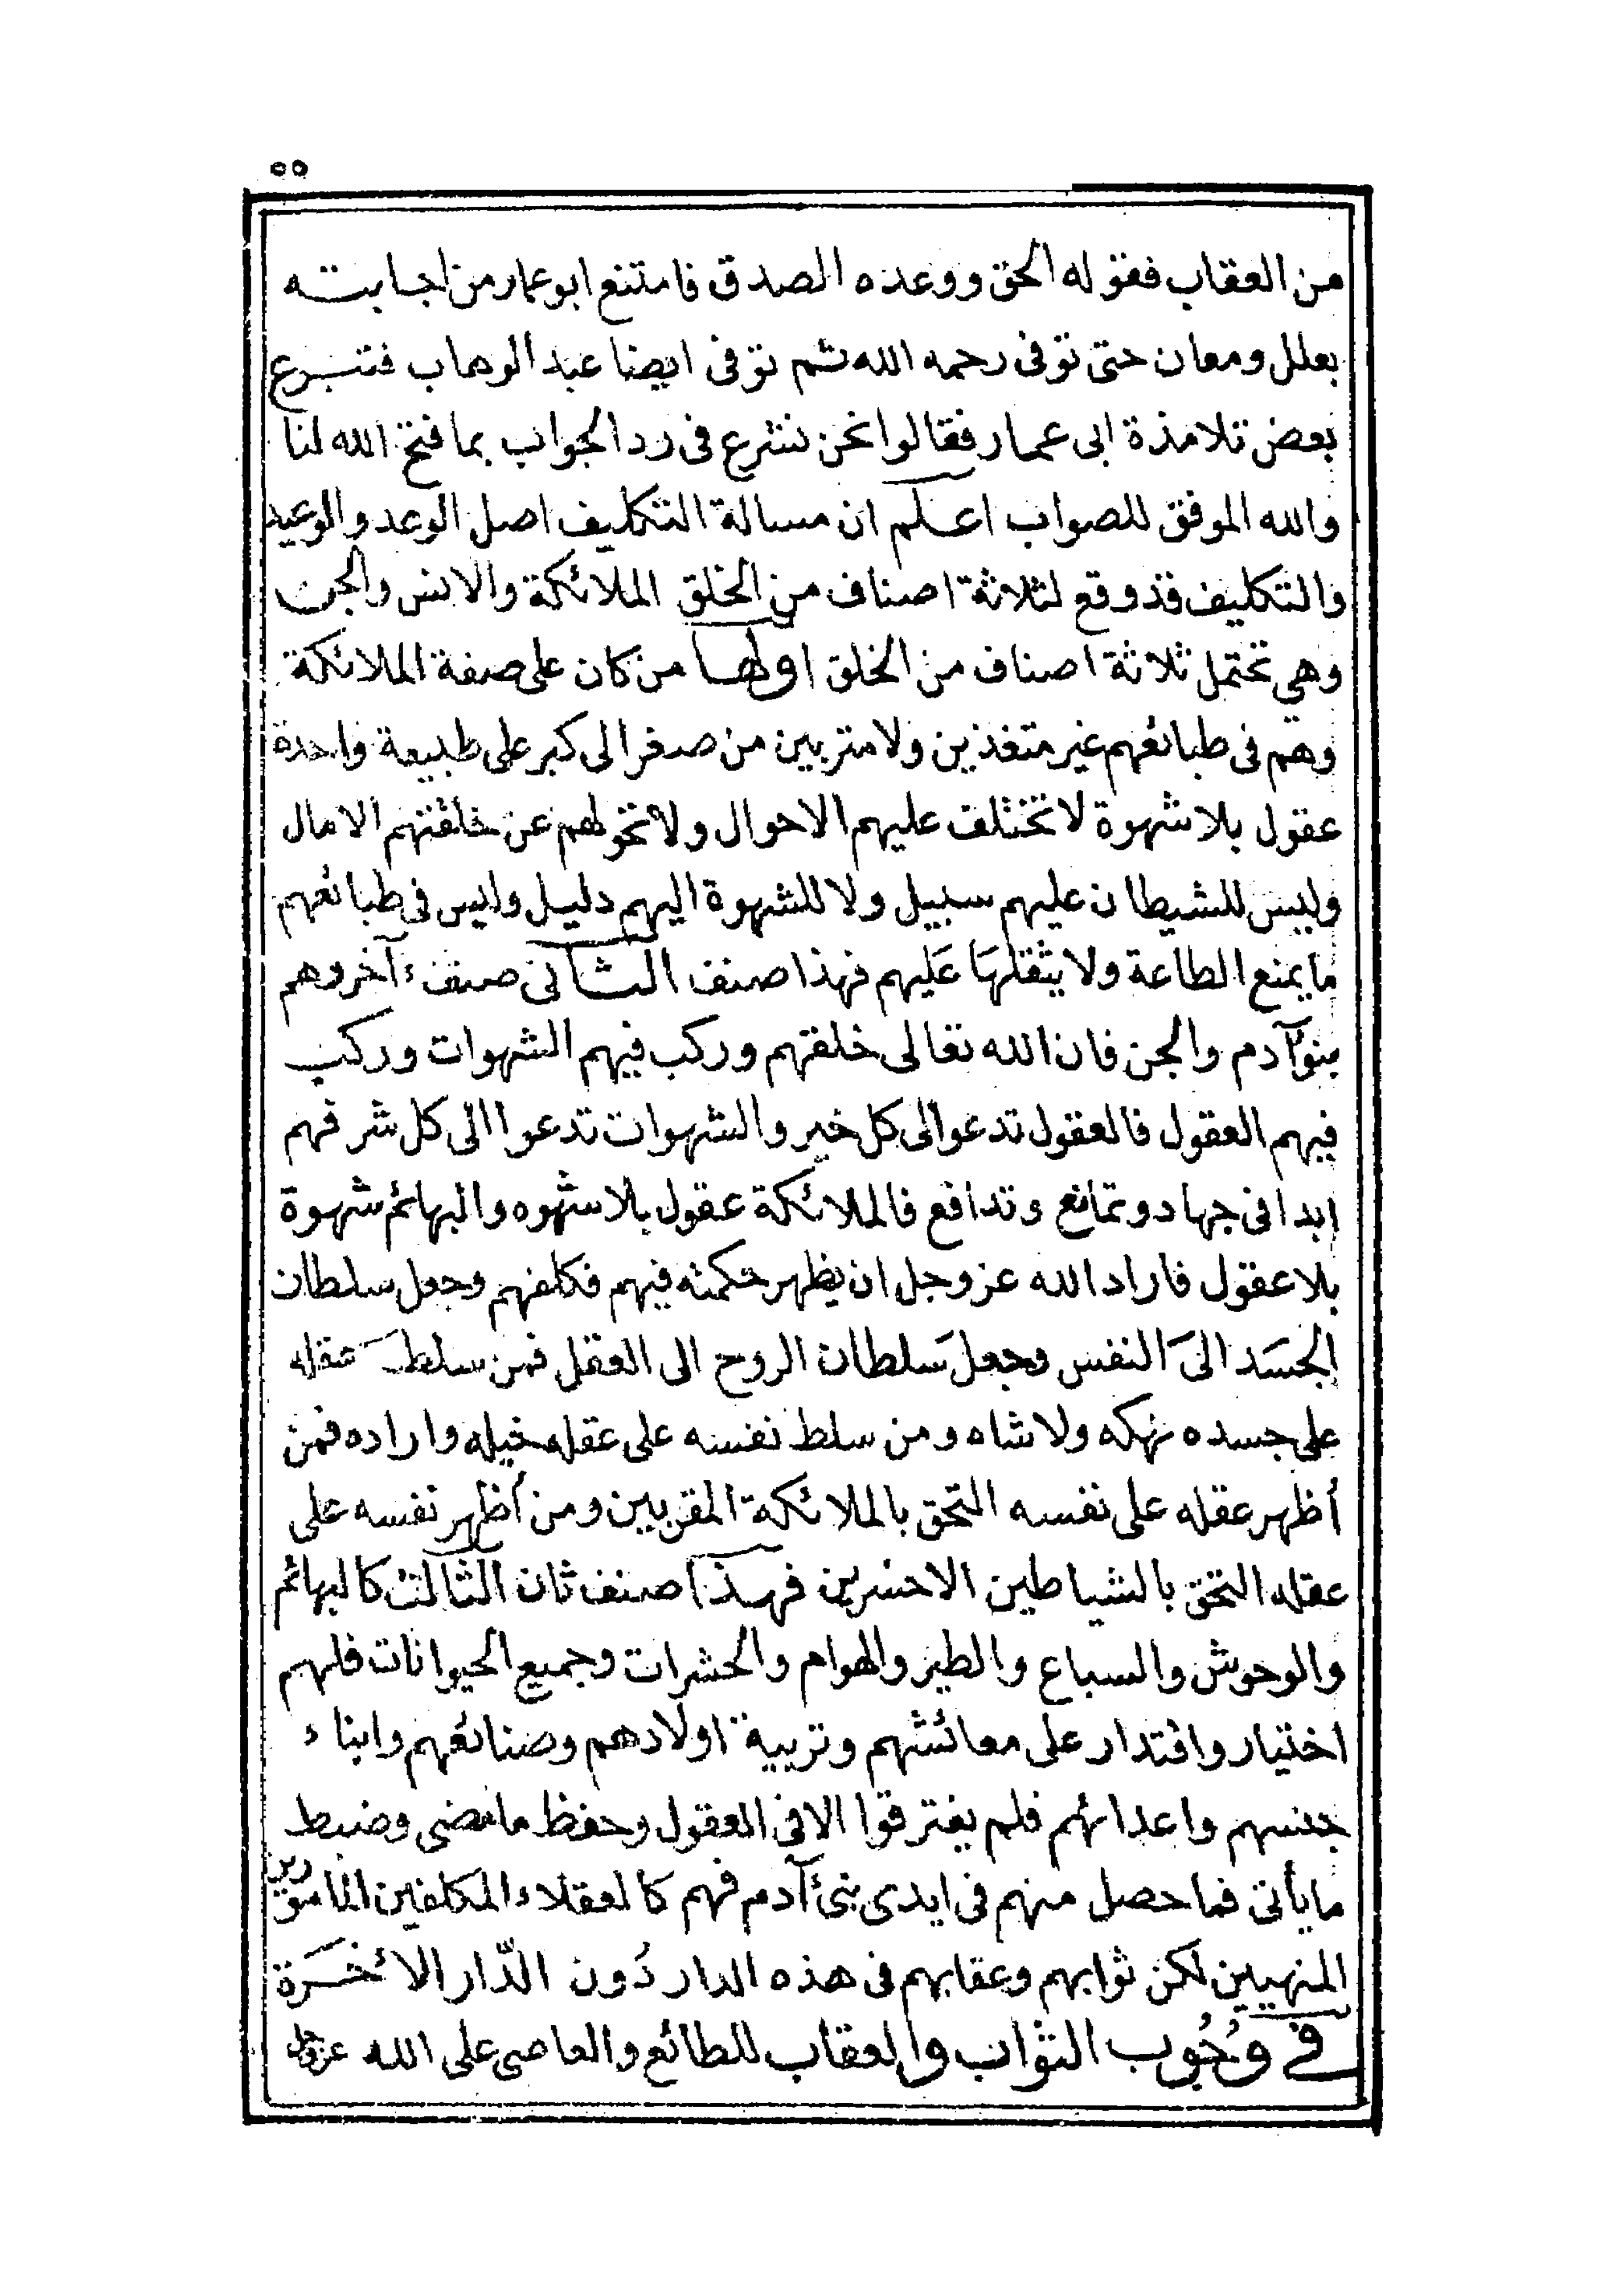 ٥٥
من العقاب فقوله الحق ووعده الصدق فامتنع ابو عمار من اجابته
بعلل ومعان حتى توفى رحمه الله ثم توفى ايضا عبد الوهاب فتسرع
بعض تلامذة ابى عمار فقالوا نحن نشرع فى رد الجواب بما فتح الله لنا
والله الموفق للصواب اعلم ان مسالة التكليف اصل الوعد والوعيد
والتكليف قد وقع لثلاثة اصناف من الخلق الملائكة والانس والجن
وهي تحتمل ثلاثة اصناف من الخلق اولها من كان على صفة الملائكة
وهم فى طبائعهم غير متغذين ولا متربين من صغر الى كبر على طبيعة واحدة
عقول بلا شهوة لا تختلف عليهم الاحوال ولا تحولهم عن خلقتهم الامال
وليس للشيطان عليهم سبيل ولا للشهوة اليهم دليل وليس فى طبائعهم
ما يمنع الطاعة ولا يثقلهَا عَليهم فهذا صنف الثانى صنف ءآخر وهم
بنوءآدم والجن فان الله تعالى خلقهم وركب فيهم الشهوات وركب
فيهم العقول فالعقول تدعوالى كل خير والشهوات تدعوا الى كل شر فهم
ابدا فى جهاد وتمانع وتدافع فالملائكة عقول بلا شهوه والبهائم شهوة
بلا عقول فاراد الله عز وجل ان يظهر حكمته فيهم فكلفهم وجعل سلطان
الجسَد الىَ النفس وجعلَ سَلطان الروح الى العقل فمن سلطَ عقله
على جسده نهكه ولاشاه ومن سلط نفسه على عقله خبله واراده فمن
أظهر عقله على نفسه التحق بالملائكة المقربين ومن أظهر نفسه على
عقله التحق بالشياطين الاخسرين فهذا صنف ثان الثالث كالبهائم
والوحوش والسباع والطير والهوام والحشرات وجميع الحيوانات فلهم
اختيار واقتدار على معائشهم وتربية اولادهم وصنائعهم وابناء
جنسهم واعدائهم فلم يفترقوا الا فى العقول وحفظ ما مضى وضبط
ما يأتى فما حصل منهم فى ايدى بنىءآدم فهم كالعقلاء المكلفين المامورين
المنهيين لكن ثوابهم وعقابهم فى هذه الدار دُون الدّار الاٴخرَة
فى وُجُوب الثواب والعقاب للطائع والعاصى على الله عز وجل